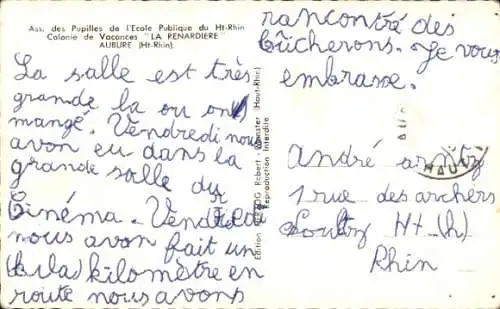 Ass. des Pupilles de l'Ecole Publique du Ht-Rhin
Colonie de Vacances "LA RENARDIERE"
AUBURE (Ht-Rhin)
La salle est très
grande la ou on
mangé. Vendredi nous
avon eu dans la
grande salle du
Cinéma. Vendredi
nous avon fait un
kilomètre en
route nous avons
rancontré des
bûcherons. Je vous
embrasse.
Edition Robert - Munster (Haut-Rhin)
Reproduction Interdite
André
1 rue des archers
Soultz Ht-(h)
Rhin